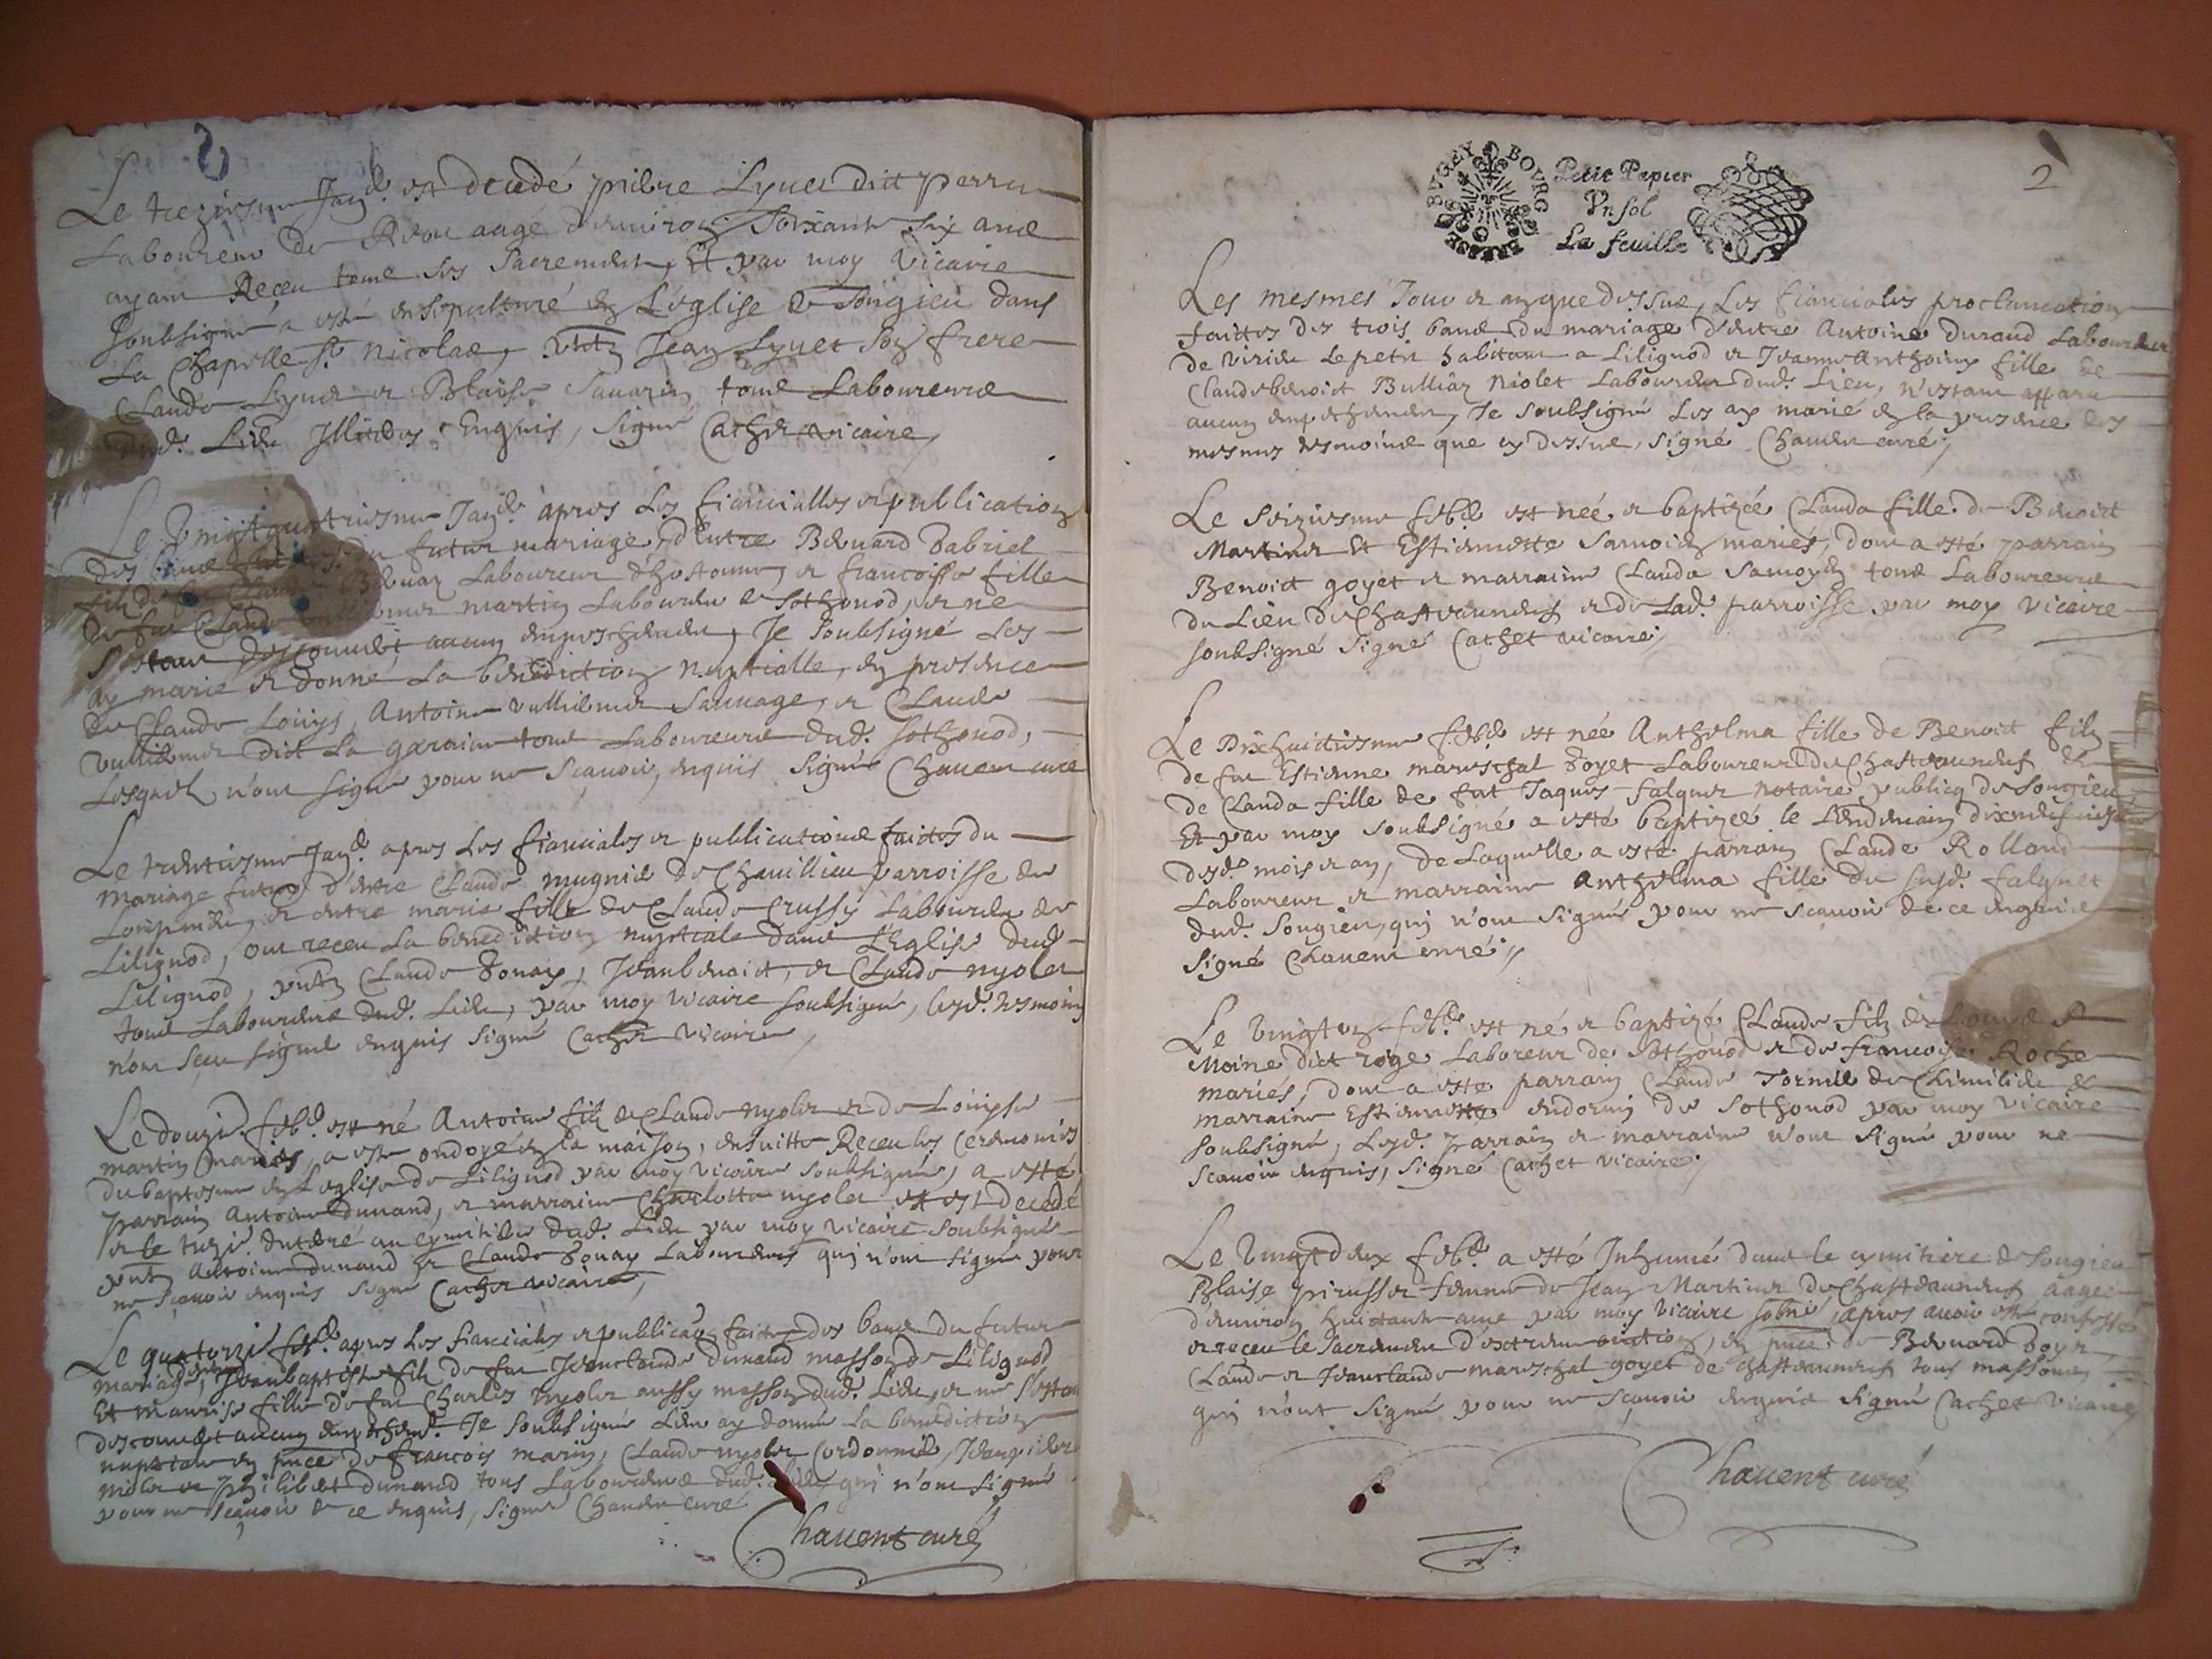 Le treziesme Jan.d est decedé pierre Lyuet dict perru
Laboureur de aagé d'environ Soixante six ans
ayant Receu tous ses Sacrements, Et par moy vicaire
soubsigné a esté ensepulturé en L'eglise de Songieu dans
La Chapelle St nicolas, Jean Lyuet son frere
Claude Lyuet et Blaise Savarin tous Laboureurs
dud. Lieu Illiteres Enquis, Signé Cachet vicaire
Le vingtquatriesme Jan.d apres Les fiancialles et publications
des bans du futur mariage d'entre Bernard Gabriel
Laboureur d'hostonne, et francoise fille
de feu Claude martin Laboureur de Sothonod, et ne
s'estant descouvert aucun empeschement, Je soubsigné Les
ay marié et donné La benediction nuptialle, en presence
de Claude Loüys, Antoine vulliemet Sauvage, et Claude
vulliemet dict La garaine tous Laboureurs dud. Sothonod,
Lesquels n'ont signé pour ne scavoir, enquis Signé Chavent curé
Le trentiesme Jan.d apres Les fianciales et publications faictes du
mariage futur d'entre Claude mugnie de Chavillieu parroisse de
Lompnieu, et entre marie fille de Claude Crussy Laboureur de
Lilignod, ont receu La benediction nuptiale dans L'Eglise dud.
Lilignod, Claude Gonay, Jeanbenoict, et Claude nyolet
tous Laboureurs dud. Lieu, par moy vicaire soubsigné, lesd. tesmoins
n'ont sceu signer enquis Signé Cachet vicaire
Le douzie. feb.d est né Antoine filz de Claude nyolet et de Loüyse
martin mariés, a esté ondoyé en la maison, ensuitte Receu les ceremonies
du baptesme en L'eglise de Lilignod par moy vicaire soubsigné, a esté
parrain Antoine dunand, et marraine Charlotte nyolet et est decedé
et le trezie. enterré au cymitiere dud. Lieu par moy vicaire soubsigné
Antoine dunand et Claude Gonay Laboureurs qui n'ont signé pour
ne scavoir enquis Signé Cachet vicaire
Le quatorzie feb.d apres Les fianciales et publicaon faites des bans du futur
mariage, Jeanbaptiste filz de feu Jeanclaude dunand masson de Lilignod
Et maurise fille de feu Charles nyolet aussy masson dud. Lieu, et ne s'estant
descouvert aucun empeschem.t Je soubsigné Leur ay donné La benediction
nuptiale en pnce de francois marin, Claude nyolet Cordonnie, Jeanpierre
niolet et philibert dunand tous Laboureurs dud. lieu qui n'ont signé
pour ne scavoir de ce enquis, signé Chavent curé
Chavent curé
2
BVGEY BOVRG BRESSE
Petit Papier
Vn sol
La feuille
Les mesmes Jour et an que dessus, Les fianciales proclamations
faites des trois bans du mariage d'entre Antoine durand Laboureur
de Virieu Le petit habitant a Lilignod et Jeanne Anthoine fille de
Claudebenoict Bulliaz niolet Laboureur dud. Lieu, n'estant apparu
aucun empechement, Je soubsigné Les ay marié en la presence des
mesmes tesmoins que cy dessus, signé Chavent curé
Le Seiziesme feb.d est née et baptizée Clauda fille de Benoict
Martinet Et Estiennette Samoien mariés, dont a esté parrain
Benoict goyet et marraine Clauda Samoyen tous Laboureurs
du Lieu de Chasteauneuf et de Lad. parroisse par moy vicaire
soubsigné Signé Cachet vicaire
Le Dixhuictiesme feb.d est née Anthelma fille de Benoict filz
de feu Estienne mareschal Goyet Laboureur de Chasteauneuf Et
de Clauda fille de feu Jaques falquet notaire publicq de Songieu
Et par moy soubsigné a esté baptizée le Lendemain dixneufviesme
desd. mois et an, de Laquelle a esté parrain Claude Rolland
Laboureur et marraine Anthelma fille du susd. falquet
dud. Songieu, qui n'ont signé pour ne scavoir de ce enquis
Signé Chavent curé
Le vingt un feb.d est né et baptizé Claude filz de Et
Moine dict roge Laboreur de Sothonod et de francoise Roche
mariés, dont a esté parrain Claude Tornie de Chimilieu Et
marraine Estiennette endormy de Sothonod par moy vicaire
soubsigné, Lesd. parrain et marraine n'ont signé pour ne
scavoir enquis, signé Cachet vicaire
Le vingtdeux feb.d a esté Inhumé dans le cymitiere de Songieu
Blaise pirusset femme de Jean Martinet de Chasteauneuf aagée
d'environ huictante ans par moy vicaire sobné, apres avoir esté confessée
et receu le Sacrement d'extreme onction, en pnce de Bernard Goyet
Claude et Jeanclaude mareschal goyet de chasteauneuf tous massons
qui n'ont signé pour ne scavoir enquis signé Cachet vicaire
Chavent curé